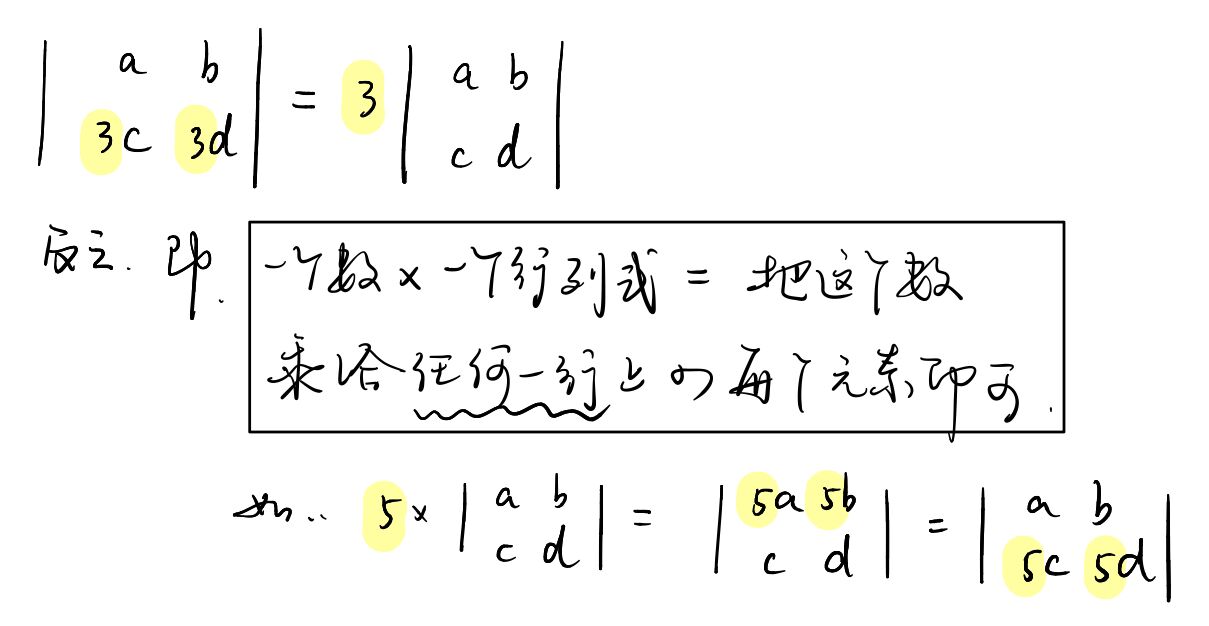 | a b | = 3 | a b |
| 3c 3d | | c d |
反之. 即. 一个数 × 一个行列式 = 把这个数
乘给任何一行上的每个元素即可.
如.. 5 × | a b | = | 5a 5b | = | a b |
| c d | | c d | | 5c 5d |